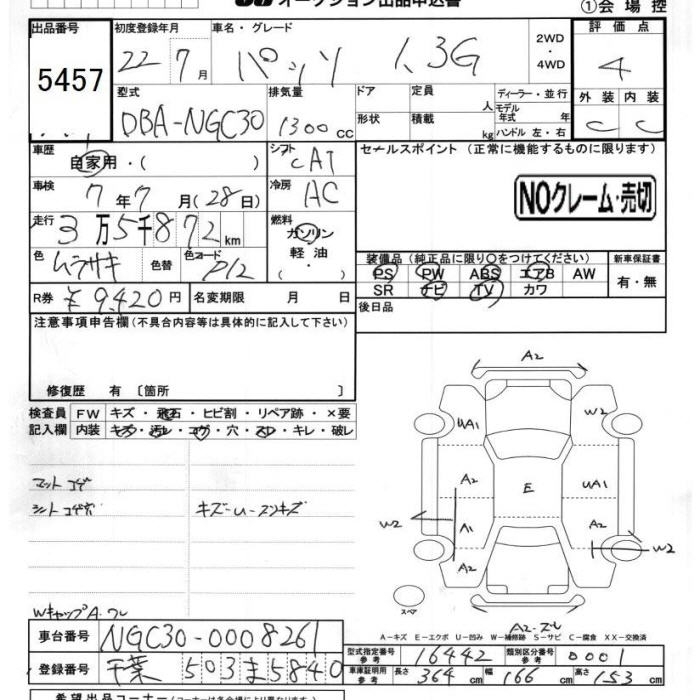 オークション出品申込書
①会場控
出品番号
5457
初度登録年月
22年7月
車名・グレード
パッソ 1.3G
2WD
・
4WD
評価点
4
外装 内装
C C
型式
DBA-NGC30
排気量
1300cc
ドア
定員
人
形状
積載
kg
ディーラー・並行
モデル年式 年
ハンドル 左・右
車歴
自家用・( )
シフト
CAT
車検
7年7月(28日)
冷房
AC
走行
3万5千872km
燃料
ガソリン
軽油
・
( )
色
ムラサキ
色替
色コード
P12
R券
¥9420円
名変期限 月 日
セールスポイント(正常に機能するものに限ります)
NOクレーム・売切
装備品(純正品に限り〇をつけてください)
PS PW ABS エアB AW
SR ナビ TV カワ
新車保証書
有・無
後日品
注意事項申告欄(不具合内容等は具体的に記入して下さい)
修復歴 有〔箇所 〕
検査員記入欄
FW キズ・飛石・ヒビ割・リペア跡・×要
内装 キズ・汚レ・コゲ・穴・スレ・キレ・破レ
マットコゲ
シートコゲ穴
キズ-U-スリキズ
WキャップA・ワレ
A2
UA1
W2
A2
UA1
E
W2
A1
A2
A2
W2
スペア
A2-ズレ
A-キズ E-エクボ U-凹み W-補修跡 S-サビ C-腐食 XX-交換済
車台番号
NGC30-0008261
登録番号
千葉 503 ま 5840
型式指定番号
参考
16442
類別区分番号
参考
0001
車庫証明用
参考
長さ 364cm 幅 166cm 高さ 153cm
希望出品コーナー(コーナーは各会場により異なります)